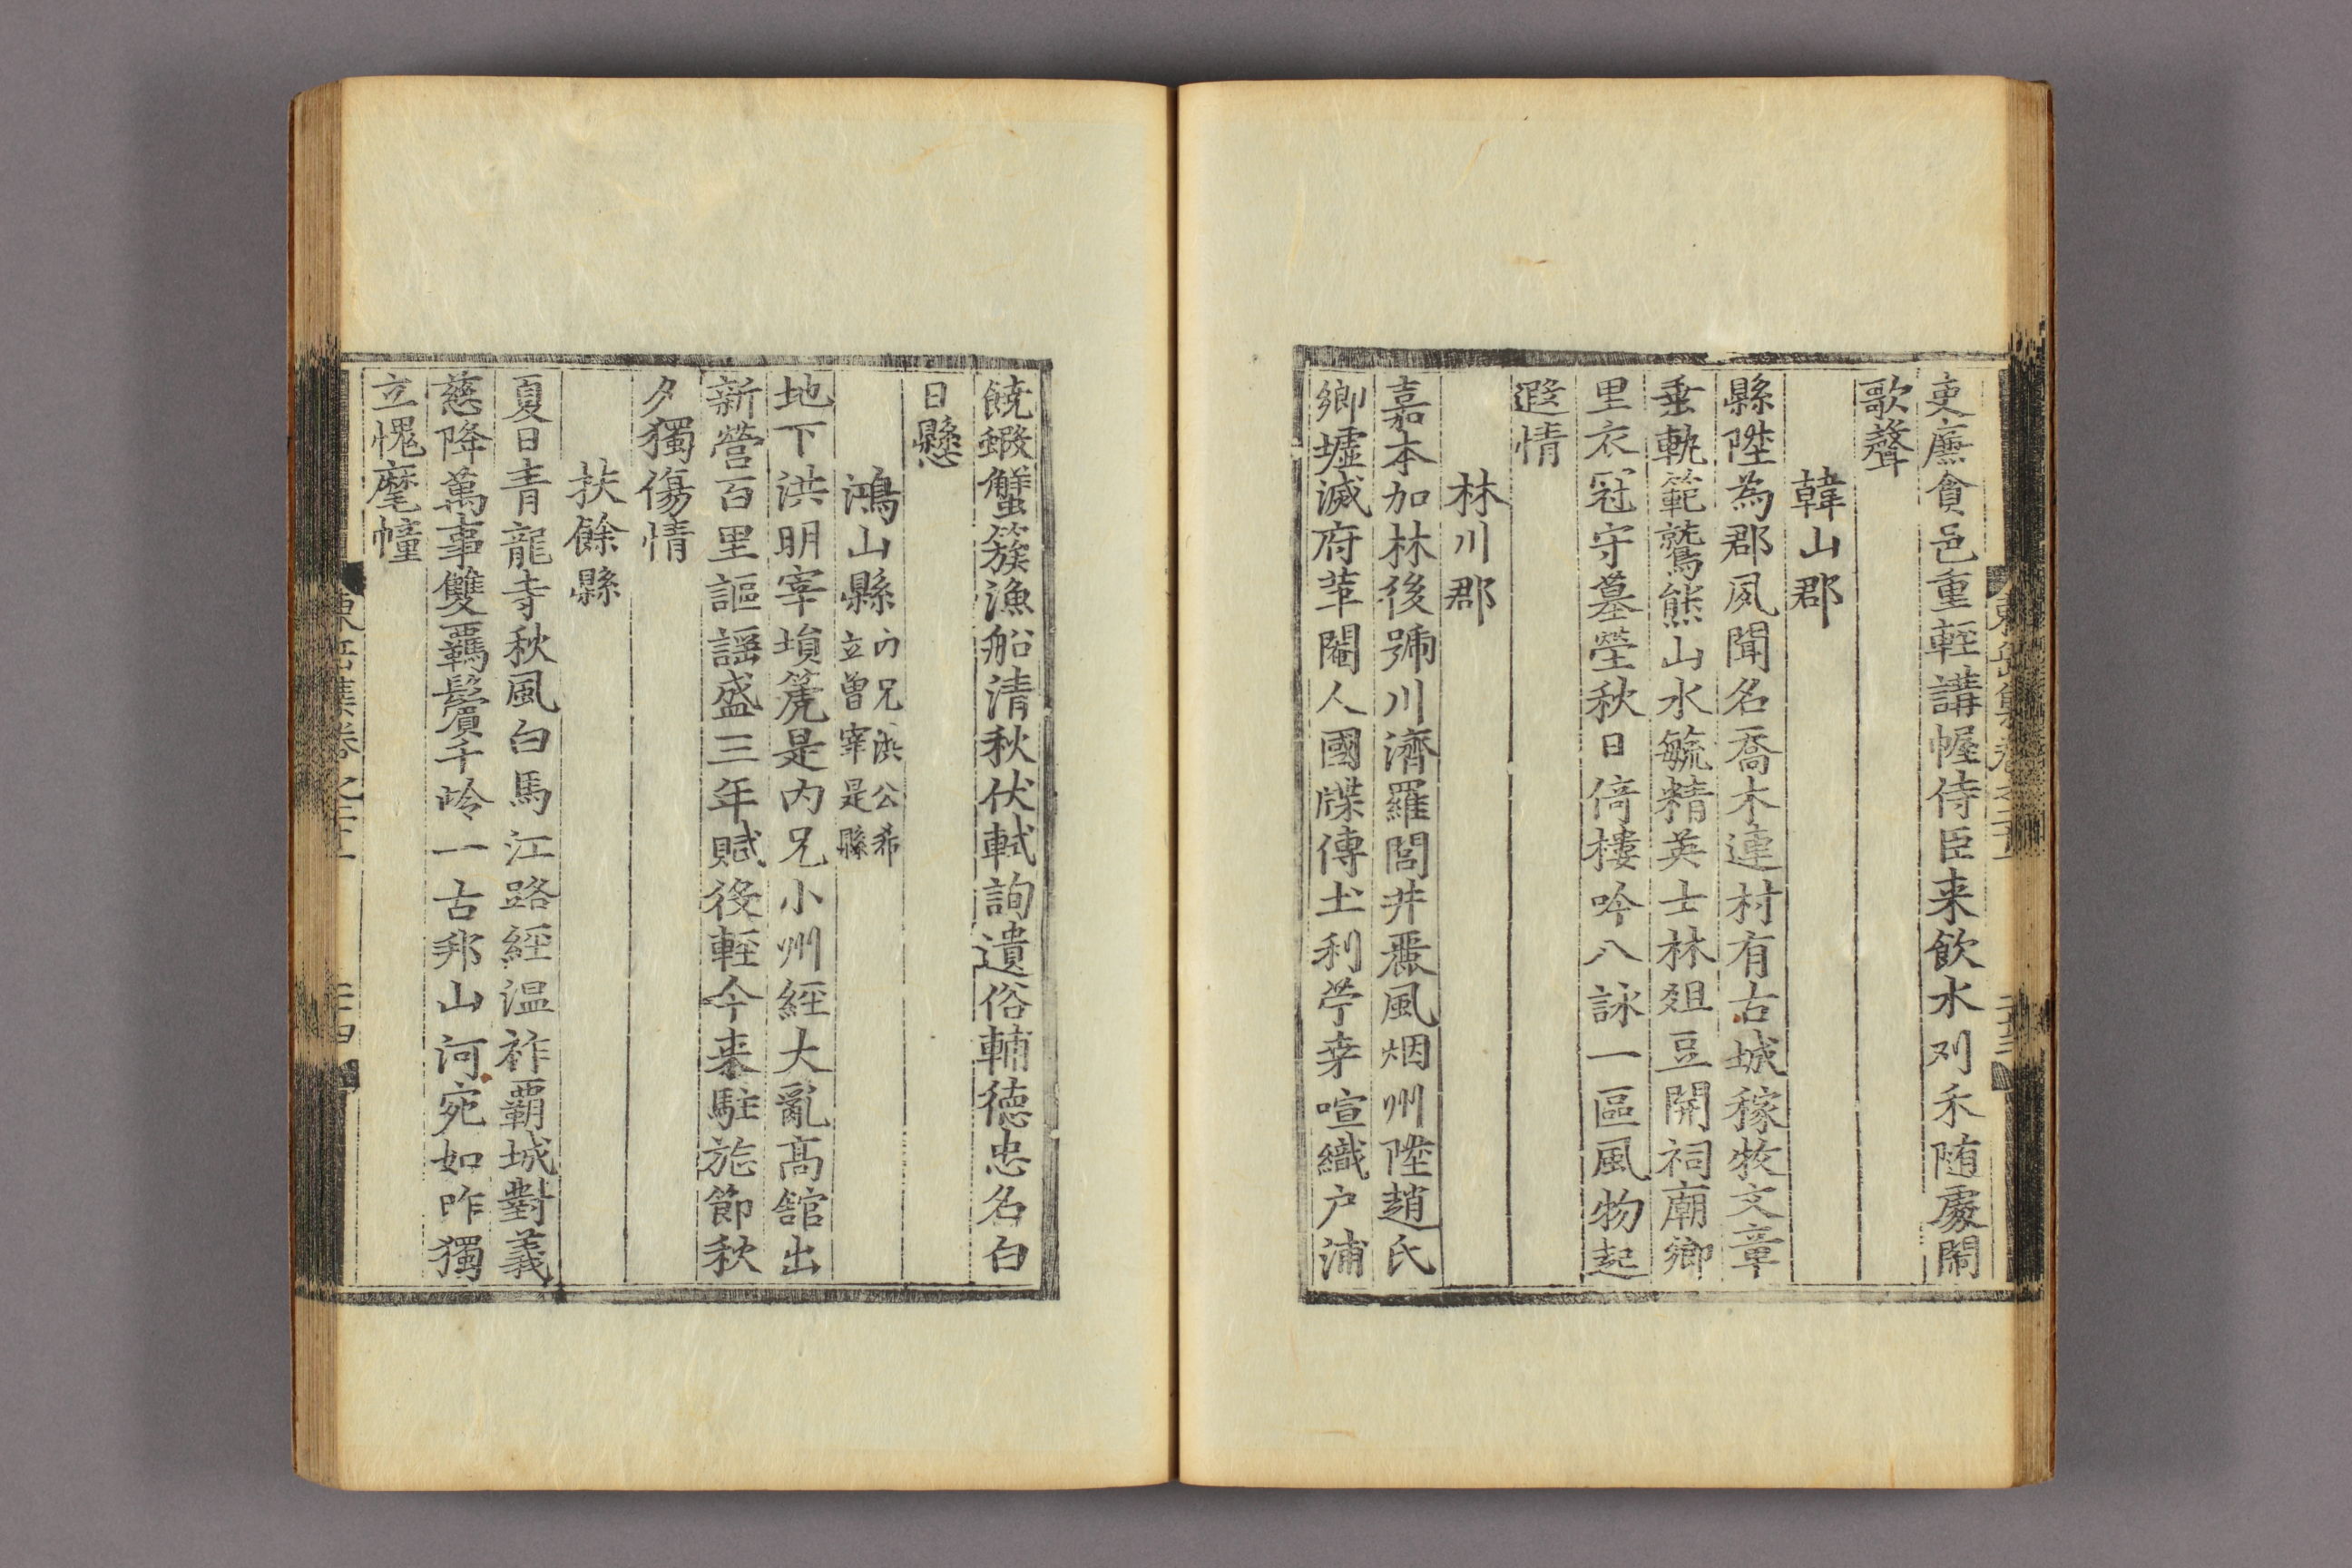 吏廉貪邑重輕講幄侍臣来飲水刈禾随處閙
歌聲
韓山郡
縣陞為郡夙聞名喬木連村有古城稼牧文章
垂軌範鷟熊山水毓精英士林俎豆開祠廟鄉
里衣冠守墓塋秋日倚樓吟八詠一區風物起
遐情
林川郡
嘉本加林後號川濟羅閭井麗風烟州陞趙氏
鄉墟滅府革閹人國牒傳土利苧桒喧織户浦
饒鰕蠏簇漁船清秋伏軾詢遺俗輔德忠名白
日懸
鴻山縣
內兄洪公希
立曽宰是縣
地下洪明宰塤篪是内兄小州經大亂高舘出
新營百里謳謡盛三年賦後輕今来駐旄節秋
夕獨傷情
扶餘縣
夏日青龍寺秋風白馬江路經温祚覇城對義
慈降萬事雙羇鬢千岭一古邦山河宛如昨獨
立愧麾幢
東岳集卷之二十一
二十四